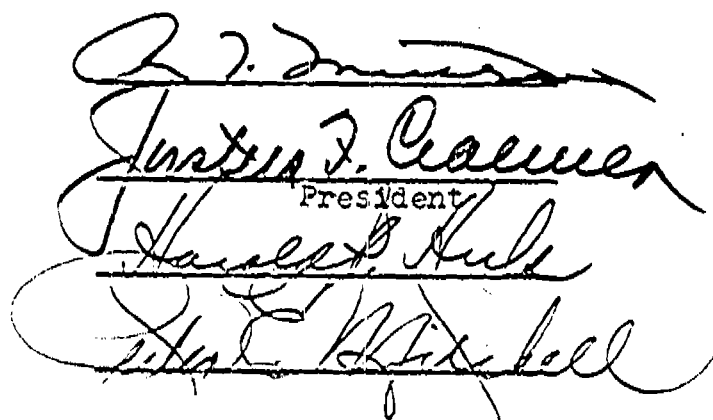 Justus F. Craemer
President
Harold P. Huls
Peter E. Mitchell